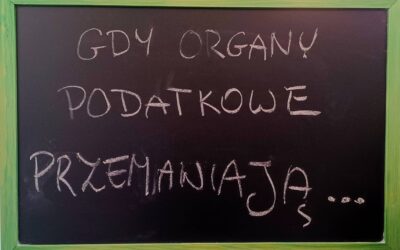 GDY ORGANY
PODATKOWE
PRZEMAWIAJĄ...